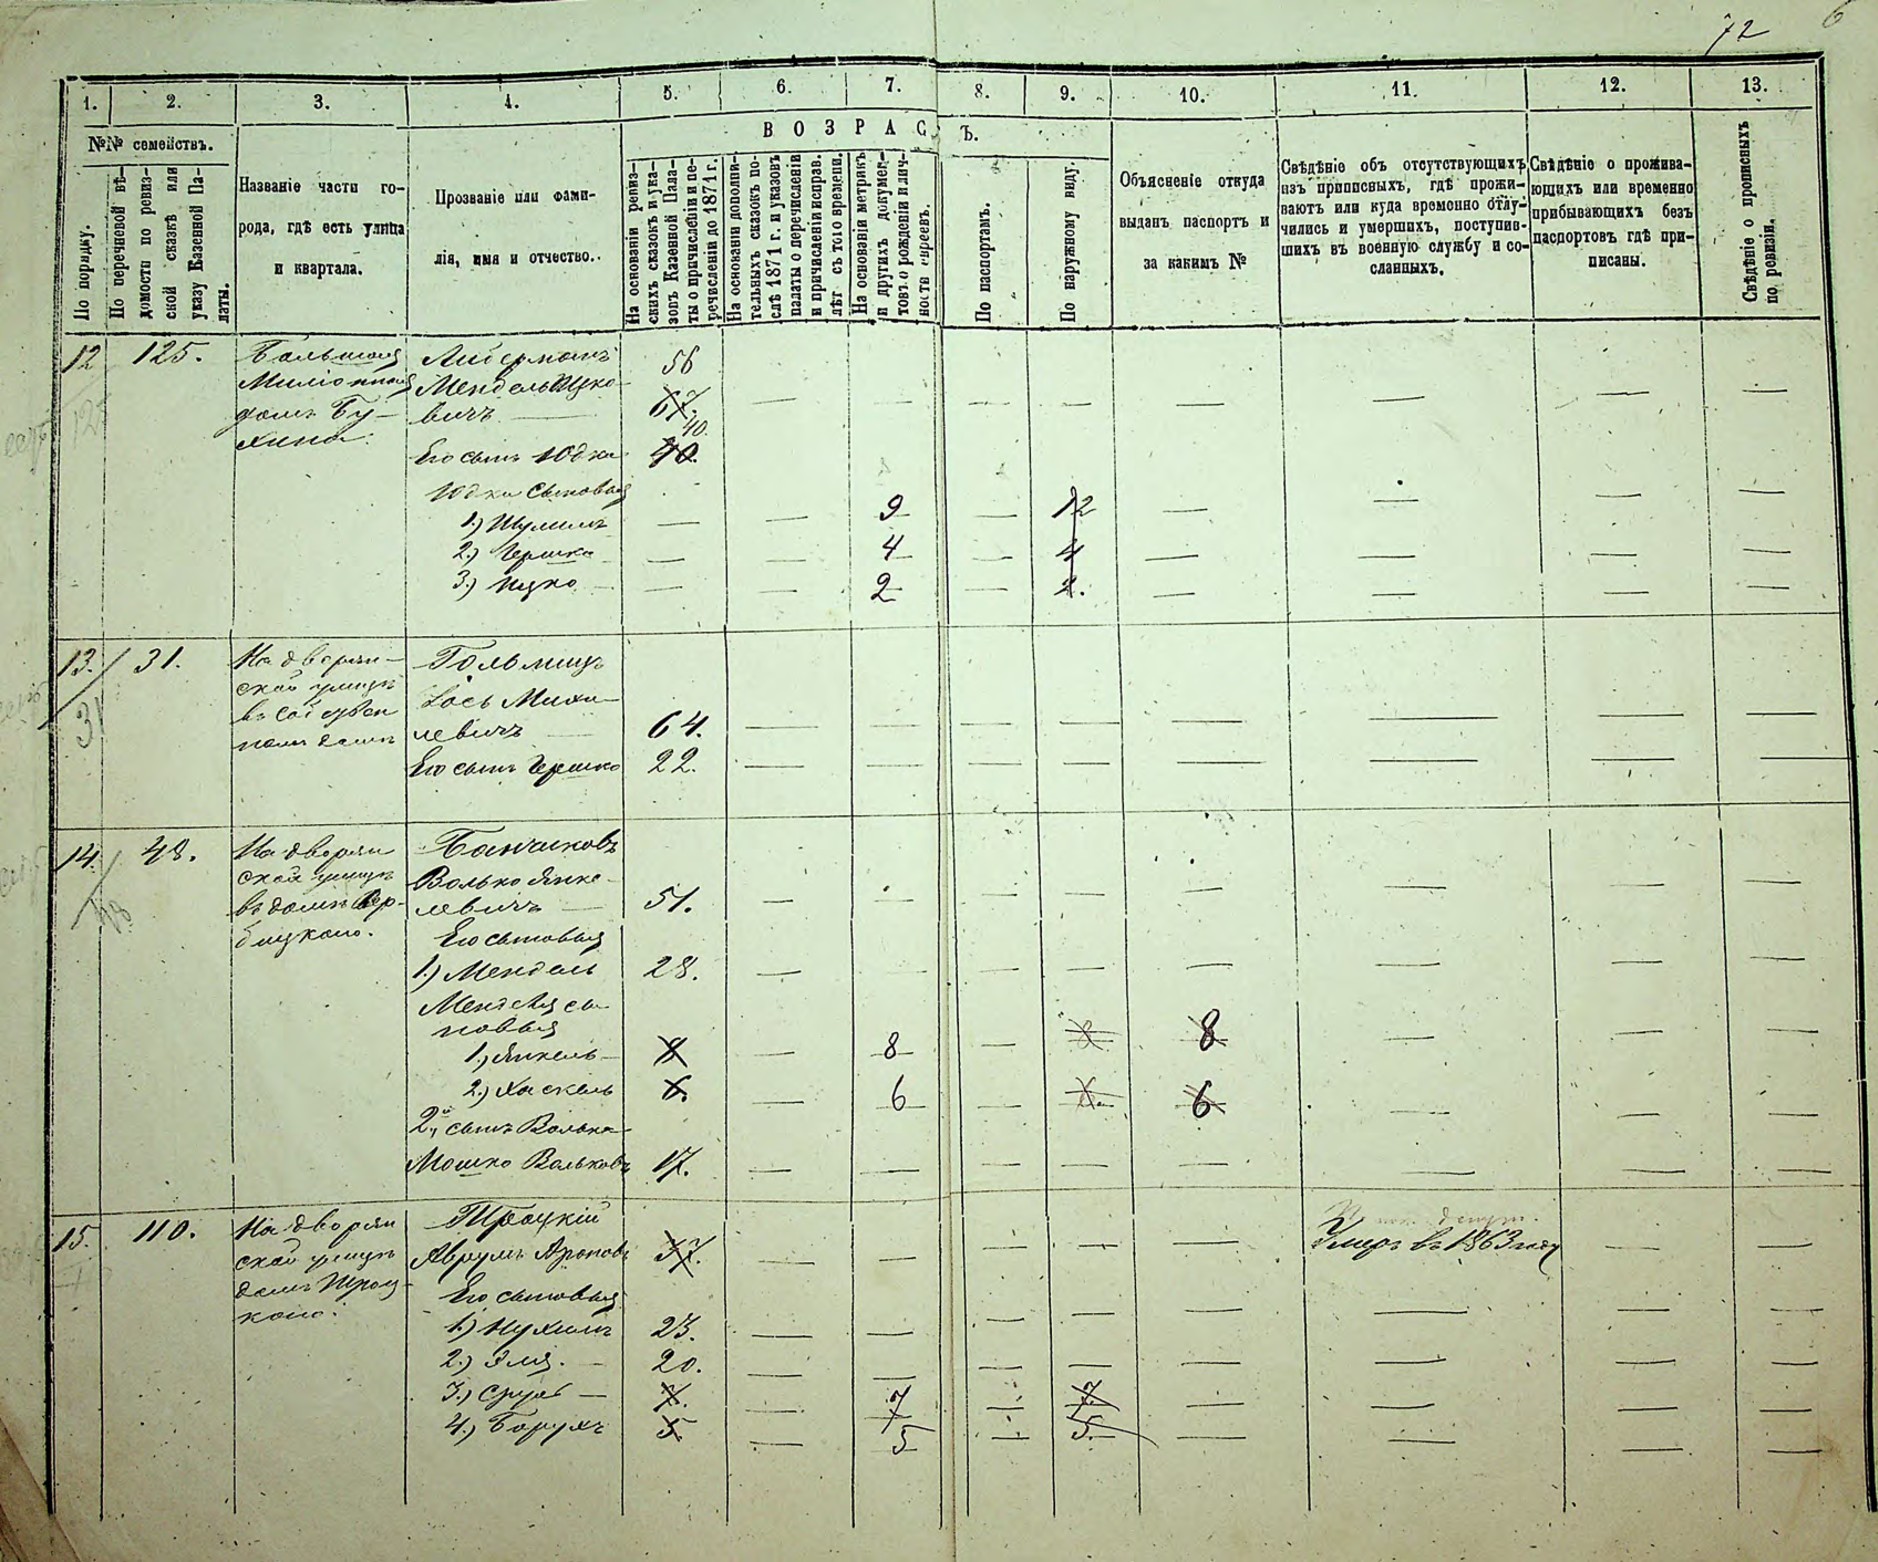 72
6
1. 2. 3. 4. 5. 6. 7. 8. 9. 10. 11. 12. 13.
№№ семействъ.
По порядку.
По перечневой вѣ-
домости по ревиз-
ской сказкѣ или
указу Казенной Па-
латы.
Названіе части го-
рода, гдѣ есть улица
и квартала.
Прозваніе или фами-
лія, имя и отчество.
ВОЗРАС Ъ.
На основаніи ревиз-
скихъ сказокъ и ука-
зовъ Казенной Пала-
ты о причисленіи и пе-
речисленіи до 1871 г.
На основаніи дополни-
тельныхъ сказокъ по-
слѣ 1871 г. и указовъ
палаты о перечисленіи
и причисленіи исправ.
лѣт съ того времени.
На основаніи метрикъ
и другихъ докумен-
товъ о рожденіи и лич-
ности евреевъ.
По паспортамъ.
По наружному виду.
Объясненіе откуда
выданъ паспортъ и
за какимъ №
Свѣдѣніе объ отсутствующихъ
изъ приписныхъ, гдѣ прожи-
ваютъ или куда временно отлу-
чились и умершихъ, поступив-
шихъ въ военную службу и со-
сланныхъ.
Свѣдѣніе о прожива-
ющихъ или временно
прибывающихъ безъ
паспортовъ гдѣ при-
писаны.
Свѣдѣніе о прописныхъ
по ревизіи.
12 125. Большая Либерманъ 56
Миліонная Мендель Ицко-
домъ Бу- вичъ — 67. — — — — — — — —
хина. 40.
Его сынъ Юдка 40.
Юдки сыновья
1.) Шулимъ — — 9 — 12 — — — —
2.) Гершко — — 4 — 4 — — — —
3.) Ицко — — 2 — 2. — — — —
125
13. 31. На дворян- Гольмицъ
ской улицѣ Іось Михе-
въ собствен левичъ — 64. — — — — — — — —
номъ домѣ
Его сынъ Гершко 22. — — — — — — — —
31
14. 48. На дворян Банчиковъ
ской улицѣ Волько Янке-
въ домѣ Вер- левичъ — 51. — — — — — — — —
бицкаго. Его сыновья
1.) Мендель 28. — — — — — — — —
Менделя сы
новья
1.) Янкель — 8 — 8 — 8 8 — — —
2.) Хаскель 6. — 6 — 6. 6 — — —
2.й сынъ Волька
Мошко Вольковъ 17. — — — — — — — —
48
15. 110. На дворян Троцкій
ской улицѣ Аврумъ Ароновъ 37. — — — — — Умеръ въ 1863 году — —
домъ Троц- Его сыновья
каго. 1.) Нухимъ 23. — — — — — — — —
2.) Эля. — 20. — — — — — — — —
3.) Сруль — 7. — 7 — 7. — — — —
4.) Борухъ 5. — 5 — 5. — — — —